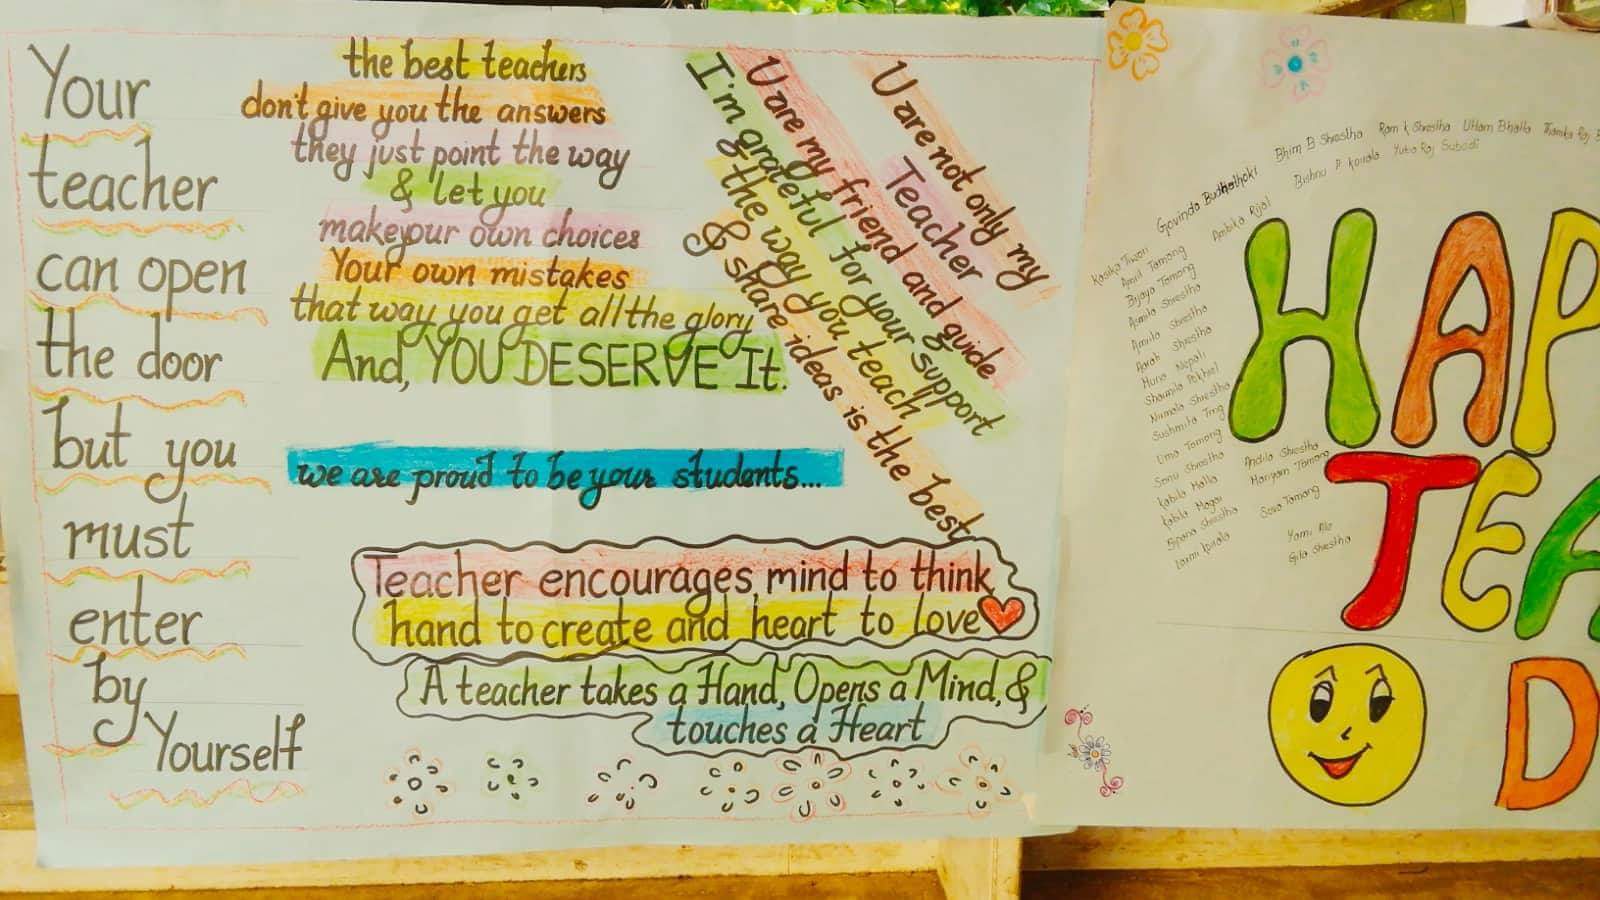 Your
teacher
can open
the door
but you
must
enter
by
Yourself
the best teachers
don't give you the answers
they just point the way
& let you
make your own choices
Your own mistakes
that way you get all the glory
And, YOU DESERVE It.
we are proud to be your students...
U are not only my
Teacher
U are my friend and guide
I'm grateful for your support
& the way you teach
& share ideas is the best
Teacher encourages, mind to think,
hand to create and heart to love
A teacher takes a Hand, Opens a Mind, &
touches a Heart
Govinda Budhathoki
Bhim B Shrestha
Ram K Shrestha
Uttam Bhatta
Bishnu P. Koirala
Yuba Raj Subedi
Ambika Rijal
Kasika Tiwari
Amit Tamang
Bijaya Tamang
Asmita Shrestha
Amita Shrestha
Aarab Shrestha
Muna Nepali
Sharmila Pokhrel
Nirmala Shrestha
Sushmita Tmg
Uma Tamang
Sonu Shrestha
Kabita Malla
Kabita Magar
Bipana Shrestha
Laxmi Koirala
Andila Shrestha
Mariyam Tamang
Sova Tamang
Gita Shrestha
HAPP
TEA
D